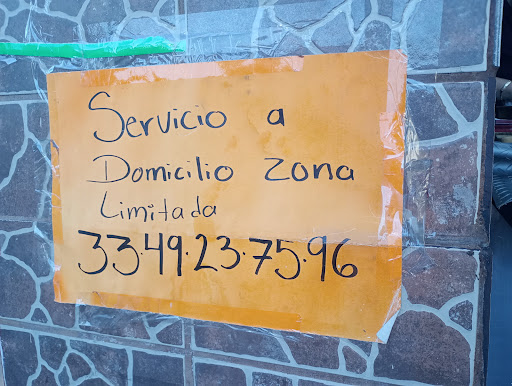 Servicio a
Domicilio zona
Limitada
33.49.23.75.96